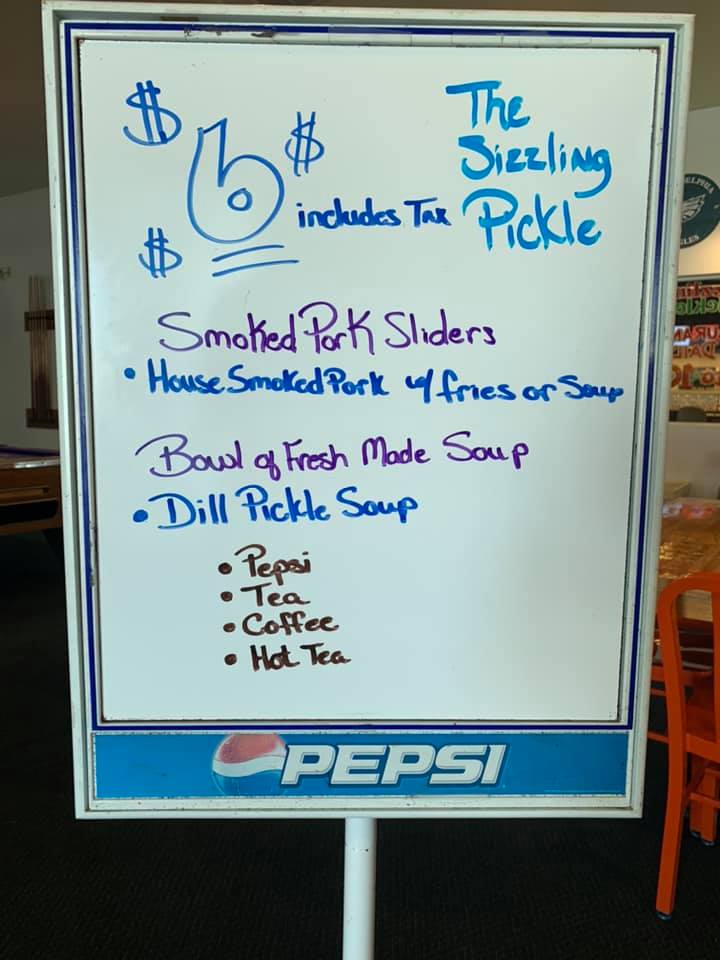 $ 6 $
$
includes Tax
The
Sizzling
Pickle
Smoked Pork Sliders
• House Smoked Pork w/ fries or Soup
Bowl of Fresh Made Soup
• Dill Pickle Soup
• Pepsi
• Tea
• Coffee
• Hot Tea
PEPSI